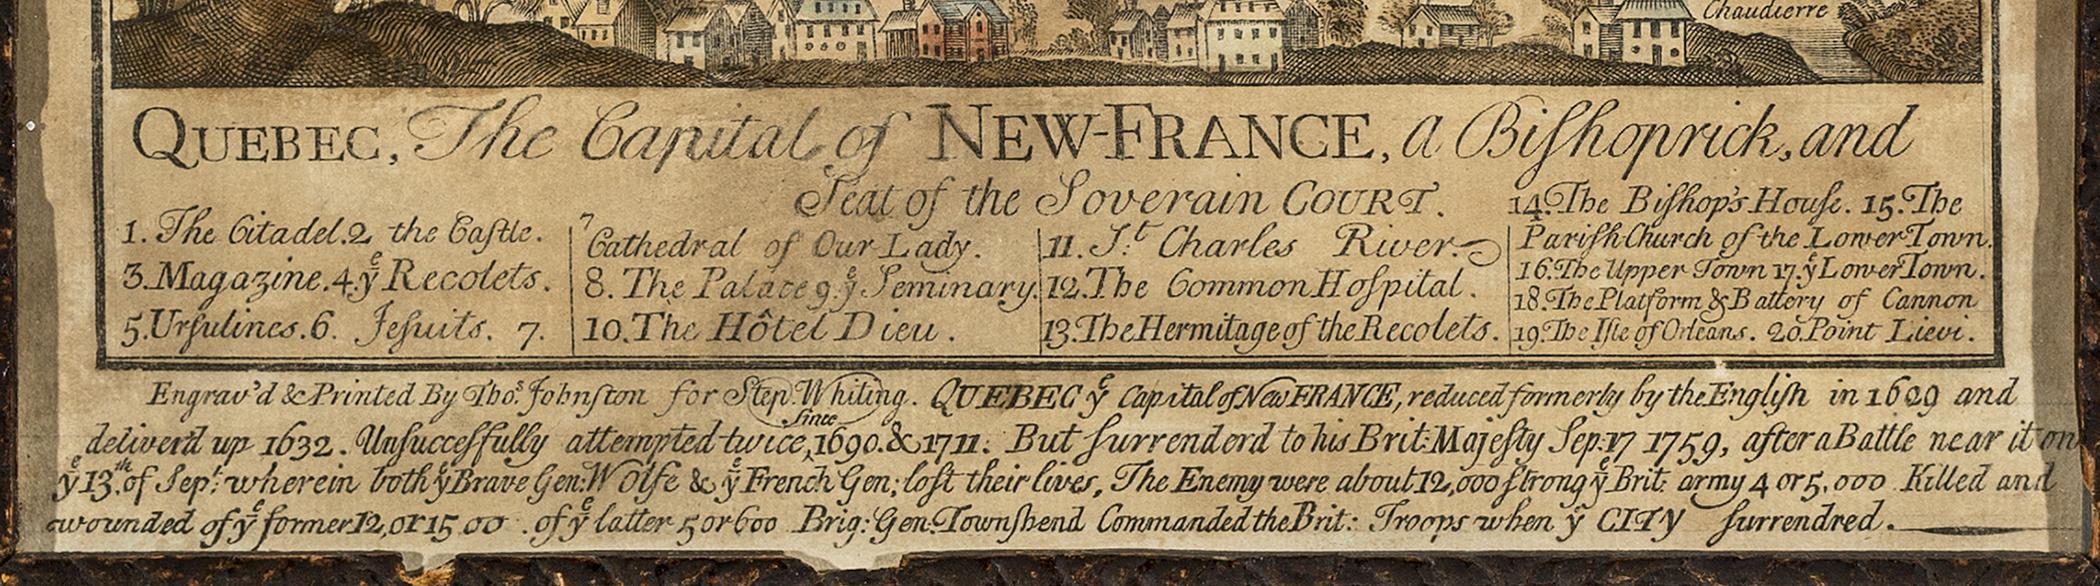 Chaudierre
QUEBEC, The Capital of NEW-FRANCE, a Biſhoprick, and
Seat of the Soverain COURT.
1. The Citadel. 2 the Caſtle.
3. Magazine. 4. yͤ Recolets.
5. Urſulines. 6. Jeſuits. 7.
7 Cathedral of Our Lady.
8. The Palace 9. yͤ Seminary.
10. The Hôtel Dieu.
11. St. Charles River.
12. The Common Hoſpital.
13. The Hermitage of the Recolets.
14. The Biſhop's Houſe. 15. The
Pariſh Church of the Lower Town.
16. The Upper Town 17. yͤ Lower Town.
18. The Platform & Battery of Cannon
19. The Iſle of Orleans. 20. Point Lievi.
Engrav'd & Printed By Thos. Johnſton for Step: Whiting. QUEBEC yͤ Capital of New FRANCE, reduced formerly by the Engliſh in 1629 and
deliverd up 1632. Unſucceſſfully attempted twice, since 1690. & 1711. But ſurrenderd to his Brit: Majeſty Sep: 17 1759, after a Battle near it on
yͤ 13.th of Sept: wherein both yͤ Brave Gen: Wolfe & yͤ French Gen: loſt their lives, The Enemy were about 12,000 ſtrong yͤ Brit: army 4 or 5,000 Killed and
wounded of yͤ former 12, or 15 00 of yͤ latter 5 or 600 Brig: Gen: Townſhend Commanded the Brit: Troops when yͤ CITY ſurrendred.